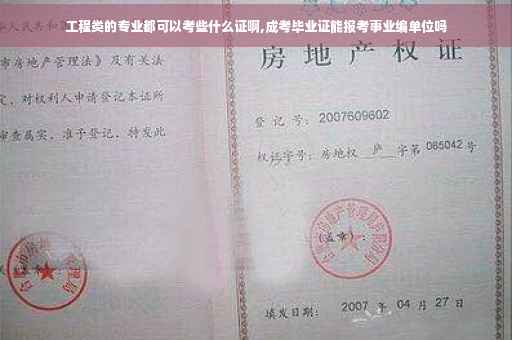 工程类的专业都可以考些什么证啊,成考毕业证能报考事业编单位吗
人民共和国
市房地产管理法》及有关法
定，对权利人申请登记本证所
审查属实，准予登记，特发此
房地产权证
登记号：2007609602
权证字号：房地权 庐 字第 085042 号
(盖章)：
填发日期： 2007 年 04 月 27 日